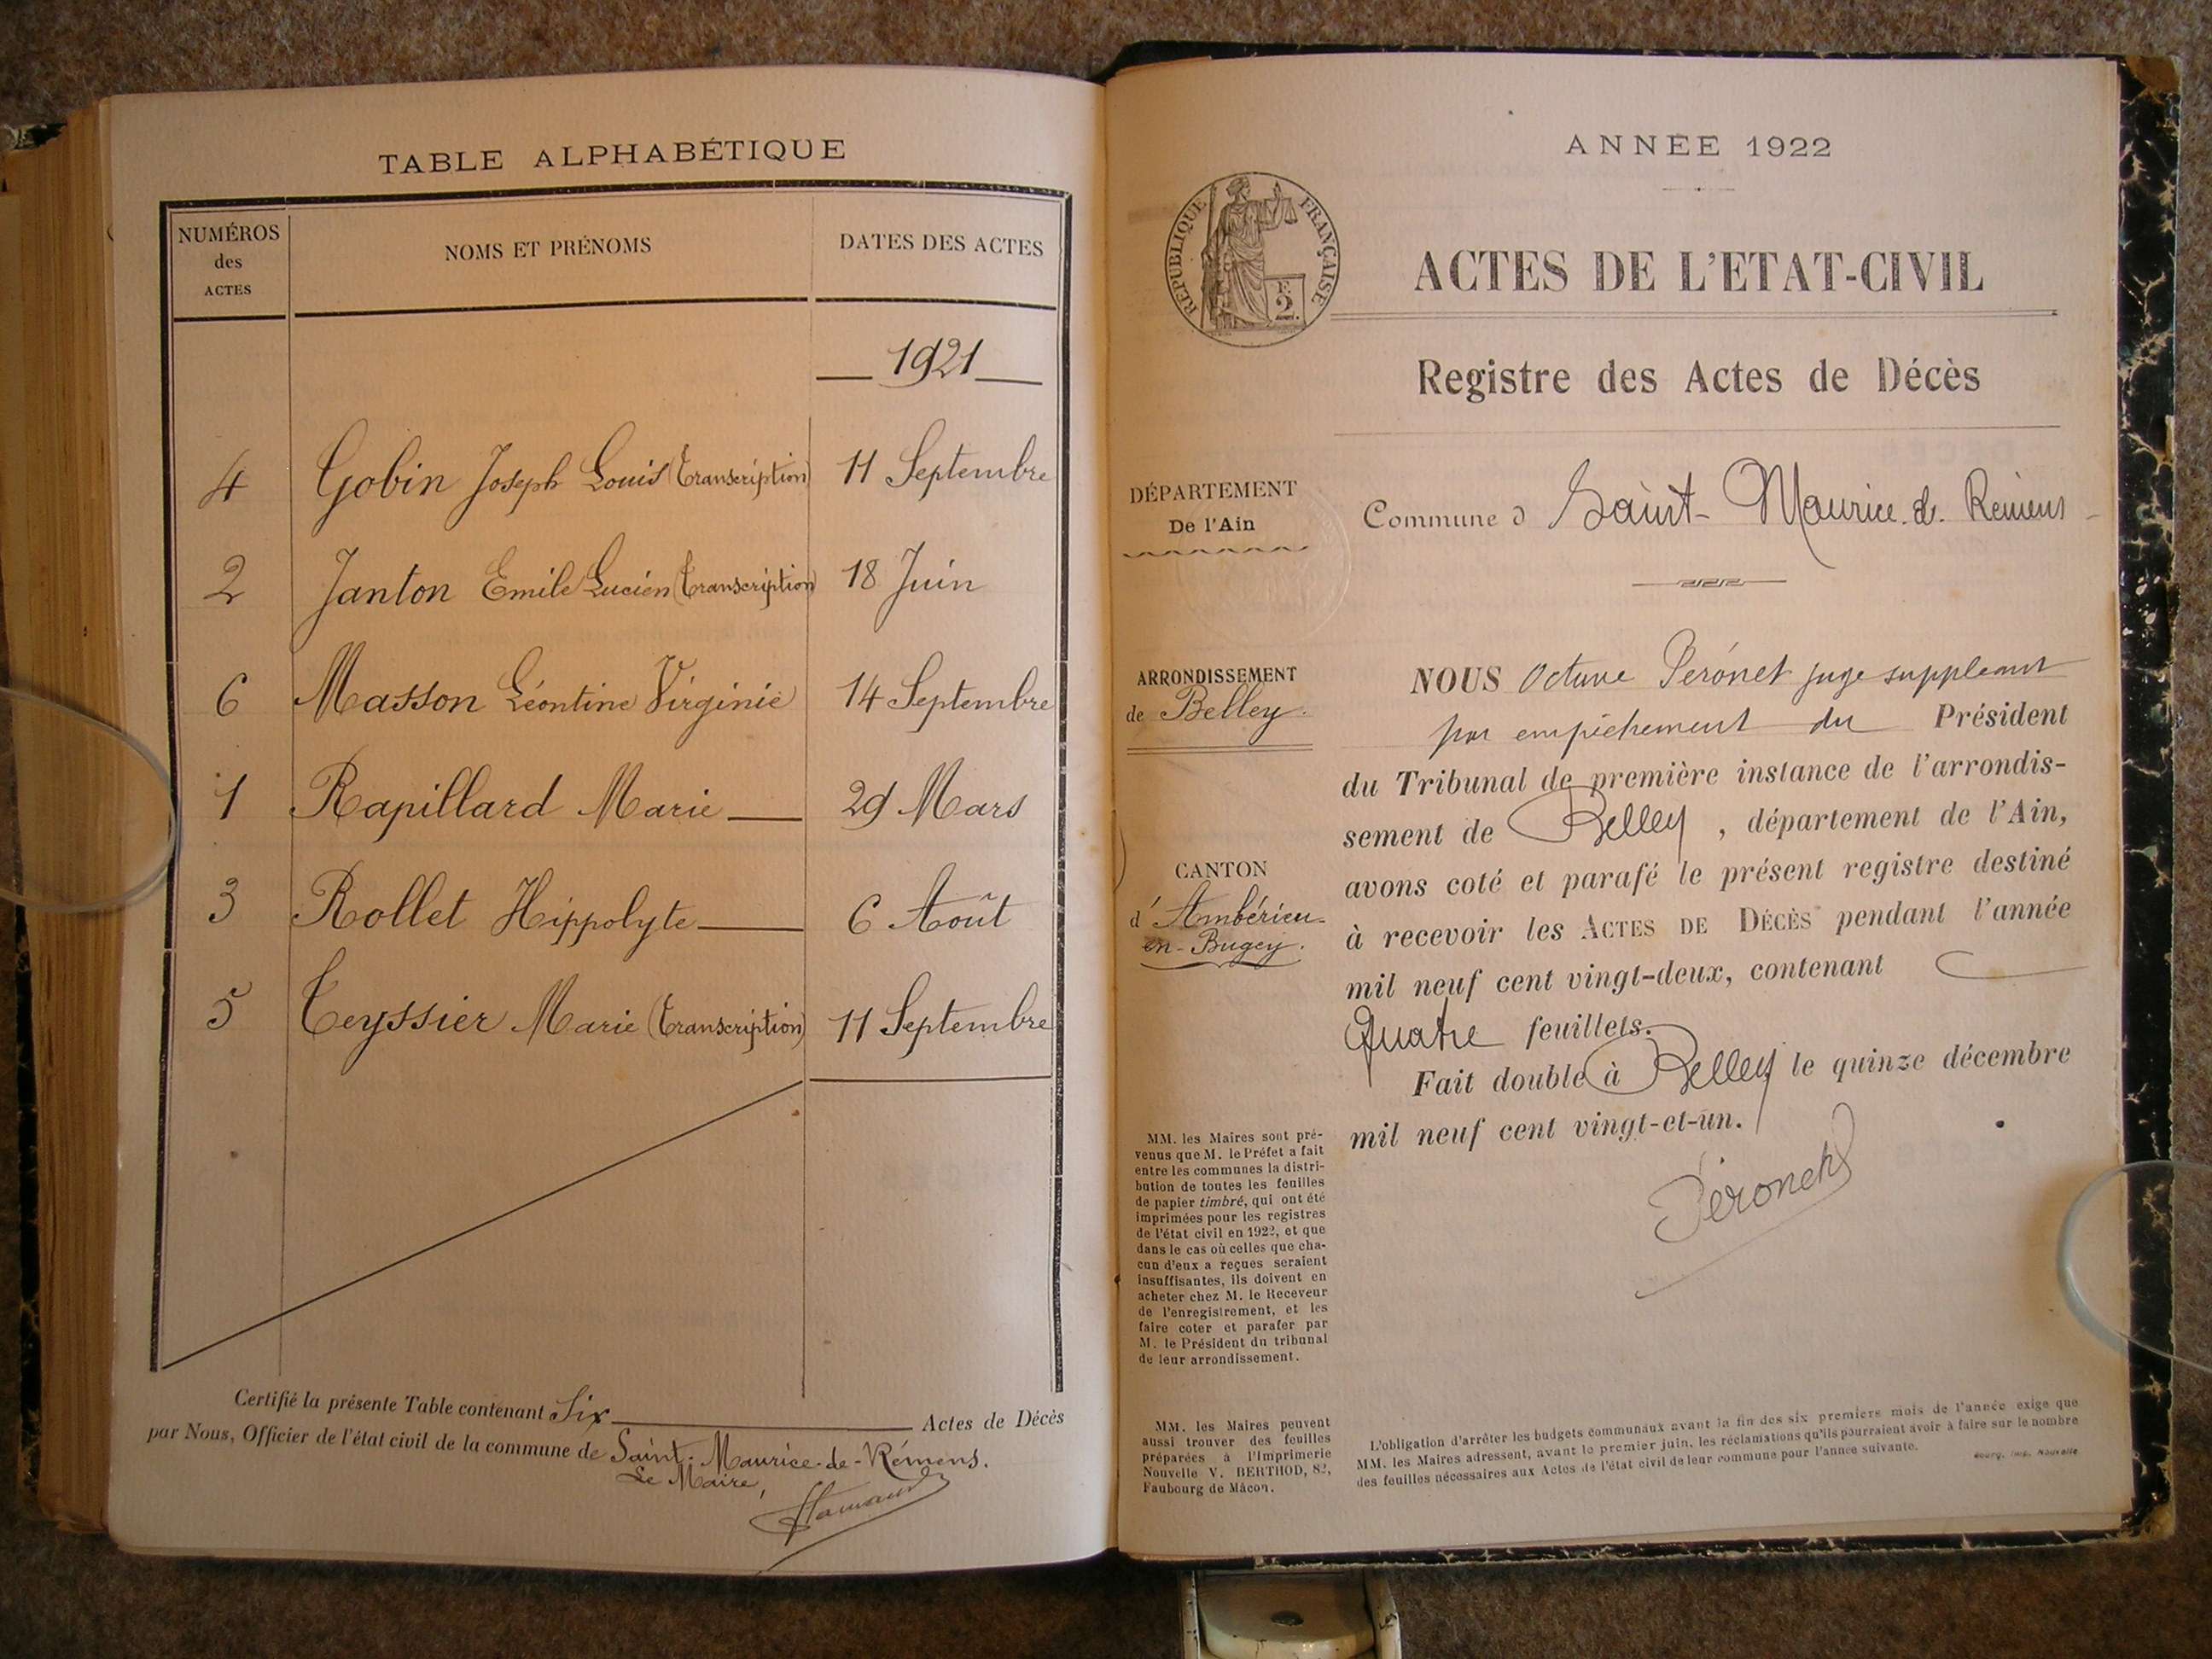 TABLE ALPHABÉTIQUE
NUMÉROS
des
ACTES
NOMS ET PRÉNOMS
DATES DES ACTES
1921
4 Gobin Joseph Louis (transcription) 11 Septembre
2 Janton Emile Lucien (transcription) 18 Juin
6 Masson Léontine Virginie 14 Septembre
1 Rapillard Marie 29 Mars
3 Rollet Hippolyte 6 Août
5 Teyssier Marie (transcription) 11 Septembre
Certifié la présente Table contenant Six Actes de Décès
par Nous, Officier de l'état civil de la commune de Saint-Maurice-de-Rémens.
Le Maire,
ANNÉE 1922
RÉPUBLIQUE FRANÇAISE
2
ACTES DE L'ETAT-CIVIL
Registre des Actes de Décès
DÉPARTEMENT
De l'Ain
Commune d Saint-Maurice-de-Remens
ARRONDISSEMENT
de Belley.
CANTON
d'Ambérieu-
en-Bugey.
NOUS Octave Péronet juge suppléant
par empêchement du Président
du Tribunal de première instance de l'arrondis-
sement de Belley, département de l'Ain,
avons coté et parafé le présent registre destiné
à recevoir les ACTES DE DÉCÈS pendant l'année
mil neuf cent vingt-deux, contenant
Quatre feuillets.
Fait double à Belley le quinze décembre
mil neuf cent vingt-et-un.
Péronet
MM. les Maires sont pré-
venus que M. le Préfet a fait
entre les communes la distri-
bution de toutes les feuilles
de papier timbré, qui ont été
imprimées pour les registres
de l'état civil en 1922, et que
dans le cas où celles que cha-
cun d'eux a reçues seraient
insuffisantes, ils doivent en
acheter chez M. le Receveur
de l'enregistrement, et les
faire coter et parafer par
M. le Président du tribunal
de leur arrondissement.
MM. les Maires peuvent
aussi trouver des feuilles
préparées à l'Imprimerie
Nouvelle V. BERTHOD, 82,
Faubourg de Mâcon.
L'obligation d'arrêter les budgets communaux avant la fin des six premiers mois de l'année exige que
MM. les Maires adressent, avant le premier juin, les réclamations qu'ils pourraient avoir à faire sur le nombre
des feuilles nécessaires aux Actes de l'état civil de leur commune pour l'année suivante.
Bourg, Imp. Nouvelle